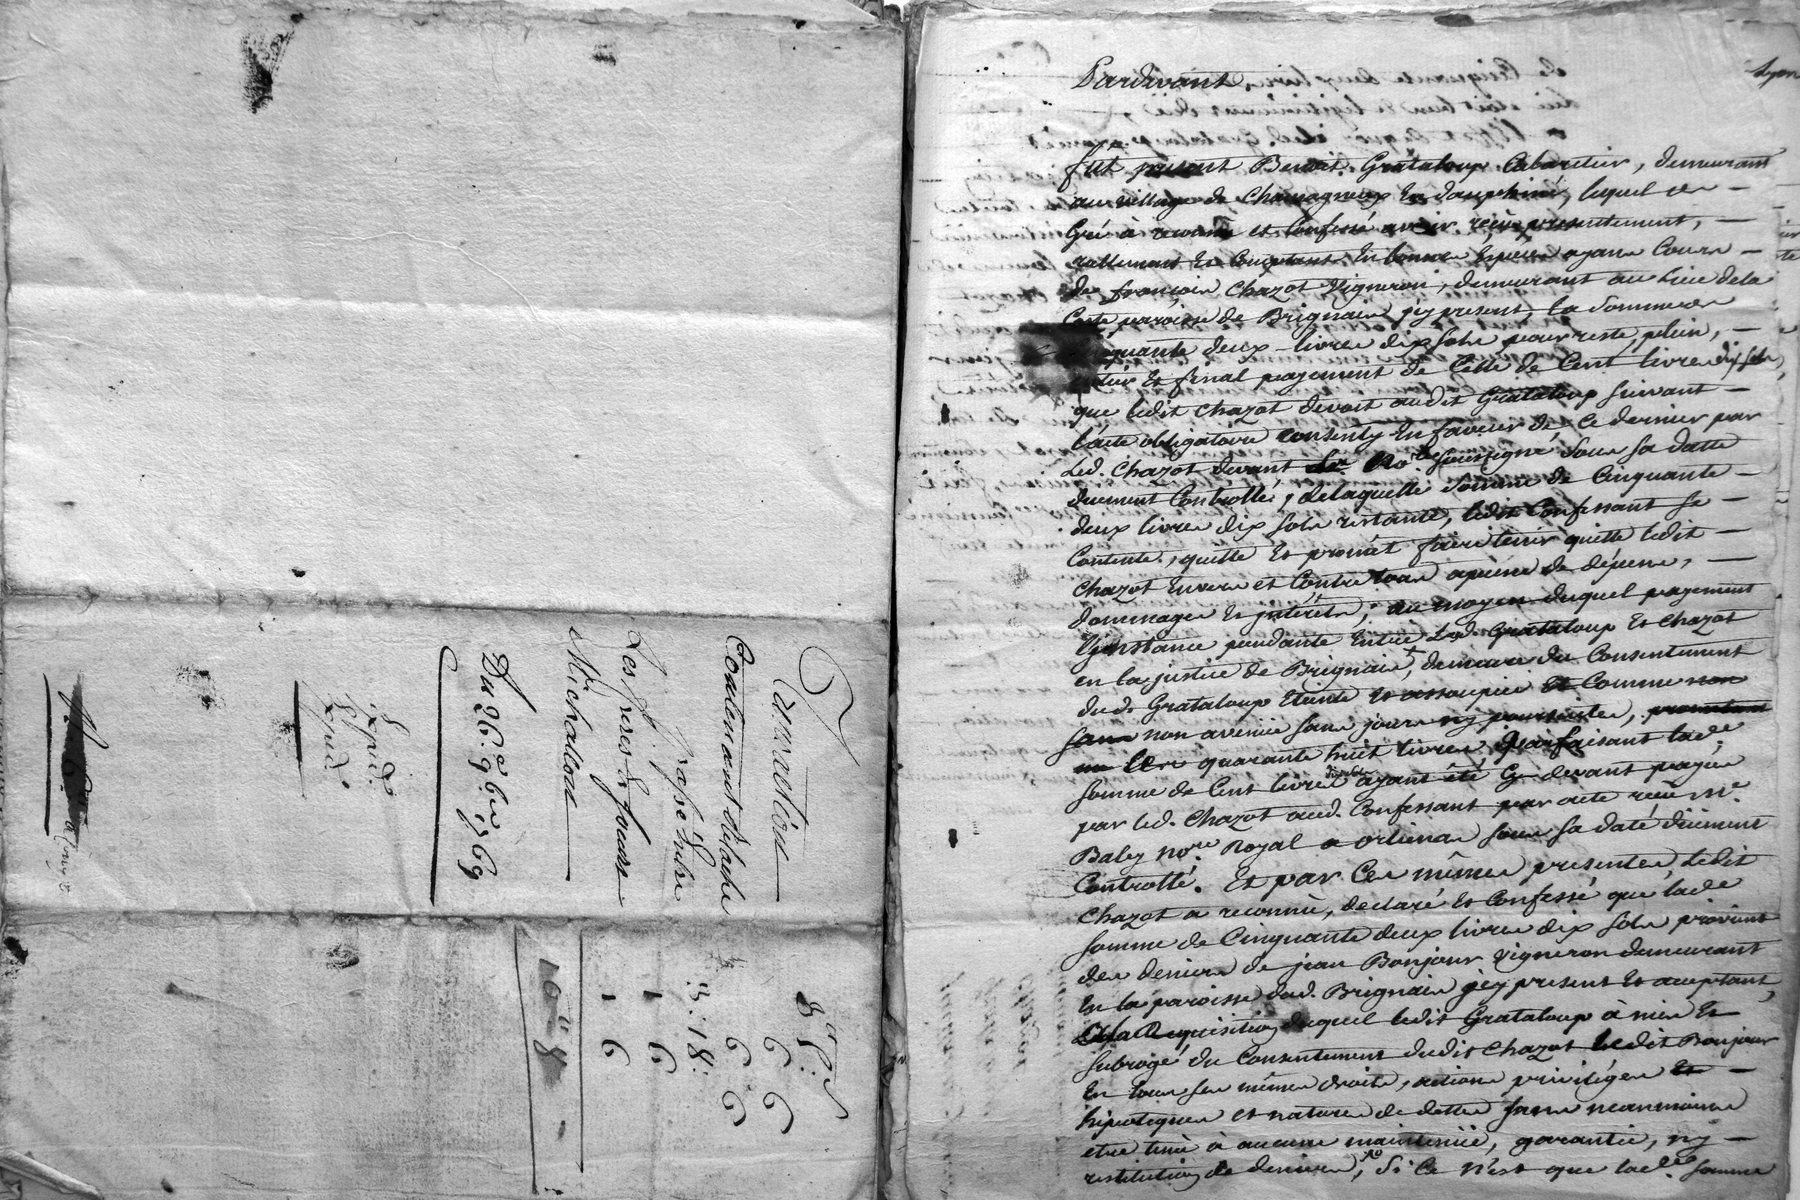 Transaction
Les freres
Michallon
Du 26. 9bre 1769
Expedé
3 18.
1 6
1 6
Lyon
Pardevant
fut present Benoit Grataloup Cabaretier, demeurant
au village de Chamagneux En dauphiné, lequel de
Gré à reconnu et Confessé avoir reçu presentement,
réellement Et Comptant En bonnes Especes ayans Cours
de françois Chazot Vigneron, demeurant au Lieu dela
Coste paroisse de Brignais icy present, la Somme de
quante deux livres dix sols pour reste, plein,
Entier Et final payement de Celle de Cent livres dix sols,
que ledit Chazot devoit audit Grataloup suivant
l'acte obligatoire consenty En faveur de Ce dernier par
Led. Chazot devant Le No.re soussigné sous sa datte
duement Controllé, delaquelle Somme de Cinquante
deux livres dix sols restante, ledit Confessant se
Contente, quitte Et promet faire tenir quitte ledit
Chazot Envers et Contre tous apeine de dépens,
dommages Et interêts, au moyen duquel payement
L'instance pendante Entre Led. Grataloup Et Chazot
en la justice de Brignais, demeure du Consentement
dud. Grataloup Eteinte Et assoupie Et Comme non
non avenüe sans jours ny poursuites,
Les quarante huit livres Parfaisant lade
somme de Cent livres dix sols ayant été Cy devant payée
par led. Chazot aud. Confessant par acte reçu Me.
Baley Nore Royal a orlienas sous sa date düement
Controllé. Et par Ces mêmes presentes, Ledit
Chazot a reconnu, declaré Et Confessé que lade
somme de Cinquante deux livres dix sols provient
des deniers de jean Bonjour Vigneron demeurant
En la paroisse dud. Brignais icy present Et aceptant,
A la Requisition duquel ledit Grataloup à mis Et
subrogé du Consentement dudit Chazot ledit Bonjour
En tous ses mêmes droits, actions privileges Et
hipoteques et nature de dette sans neanmoins
etre tenu à aucune maintenüe, garantie, ny
restitution de deniers, Si Ce n'est que lade somme